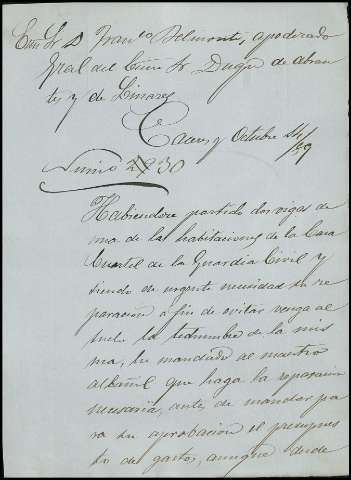 Exmo Sr. D Franco Belmonte, apoderado
Gral del Exmo Sr. Duque de Abran
tes y de Linares
Caceres y Octubre 14/
Numo 30
Habiendose partido dos vigas de
una de las habitaciones de la Casa
Cuartel de la Guardia Civil y
siendo de urgente necesidad su re
paracion á fin de evitar venga al
suelo la techumbre de la mis
ma, he mandado al maestro
albañil que haga la reparacion
necesaria, antes de mandar pa
ra su aprobacion el presupues
to de gastos, aunque desde